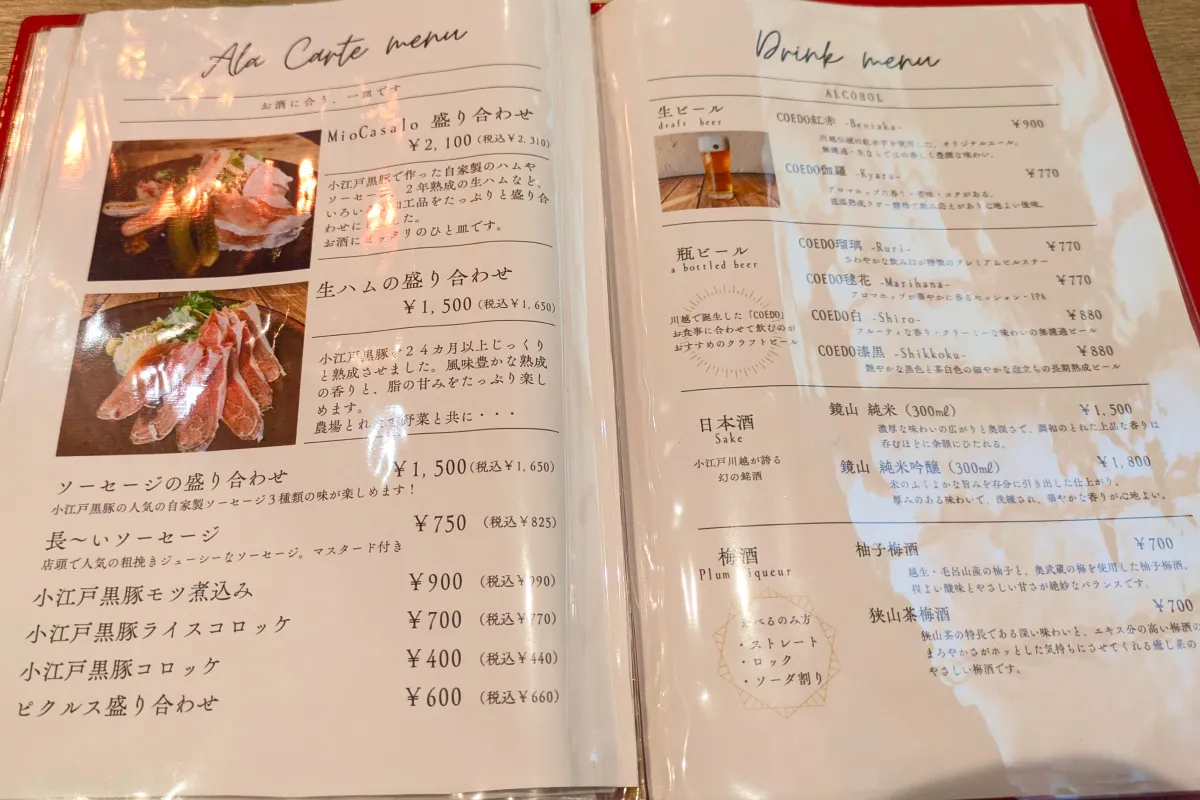 Ala Carte menu
お酒に合う、一皿です
MioCasalo 盛り合わせ
¥2,100(税込¥2,310)
小江戸黒豚で作った自家製のハムや
ソーセージ、2年熟成の生ハムなど、
いろい 加工品をたっぷりと盛り合
わせに した。
お酒にピッタリのひと皿です。
生ハムの盛り合わせ
¥1,500(税込¥1,650)
小江戸黒豚を24カ月以上じっくり
と熟成させました。風味豊かな熟成
の香りと、脂の甘みをたっぷり楽し
めます。
農場とれ 野菜と共に・・・
ソーセージの盛り合わせ ¥1,500(税込¥1,650)
小江戸黒豚の人気の自家製ソーセージ3種類の味が楽しめます!
長〜いソーセージ ¥750 (税込¥825)
店頭で人気の粗挽きジューシーなソーセージ。マスタード付き
小江戸黒豚モツ煮込み ¥900 (税込¥990)
小江戸黒豚ライスコロッケ ¥700 (税込¥770)
小江戸黒豚コロッケ ¥400 (税込¥440)
ピクルス盛り合わせ ¥600 (税込¥660)
Drink menu
ALCOHOL
生ビール
draft beer
COEDO紅赤 -Beniaka- ¥900
川越伝統の紅赤芋を使用した、オリジナルエール。
無濾過・生ならではの香しく豊潤な味わい。
COEDO伽羅 -Kyara- ¥770
アロマホップの香り・苦味・コクがある、
低温熟成ラガー酵母で飲み応えがあり心地よい後味。
瓶ビール
a bottled beer
川越で誕生した「COEDO」
お食事に合わせて飲むのが
おすすめのクラフトビール
COEDO瑠璃 -Ruri- ¥770
さわやかな飲み口が特徴のプレミアムピルスナー
COEDO毬花 -Marihana- ¥770
アロマホップが華やかに香るセッション・IPA
COEDO白 -Shiro- ¥880
フルーティな香り・クリーミーな味わいの無濾過ビール
COEDO漆黒 -Shikkoku- ¥880
艶やかな黒色と茶白色の細やかな泡立ちの長期熟成ビール
日本酒
Sake
小江戸川越が誇る
幻の銘酒
鏡山 純米(300㎖) ¥1,500
濃厚な味わいの広がりと奥深さで、調和のとれた上品な香りは
呑むほどに余韻にひたれる。
鏡山 純米吟醸(300㎖) ¥1,800
米のふくよかな旨みを存分に引き出した仕上がり。
厚みのある味わいで、洗練され、華やかな香りが心地よい。
梅酒
Plum liqueur
選べるのみ方
・ストレート
・ロック
・ソーダ割り
柚子梅酒 ¥700
越生・毛呂山産の柚子と、奥武蔵の梅を使用した柚子梅酒。
程よい酸味とやさしい甘さが絶妙なバランスです。
狭山茶梅酒 ¥700
狭山茶の特長である深い味わいと、エキス分の高い梅酒の
まろやかさがホッとした気持ちにさせてくれる癒し系の
やさしい梅酒です。